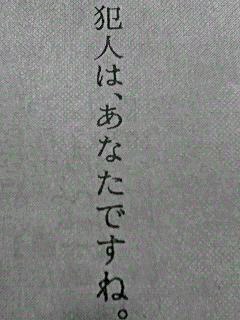 犯人は、あなたですね。